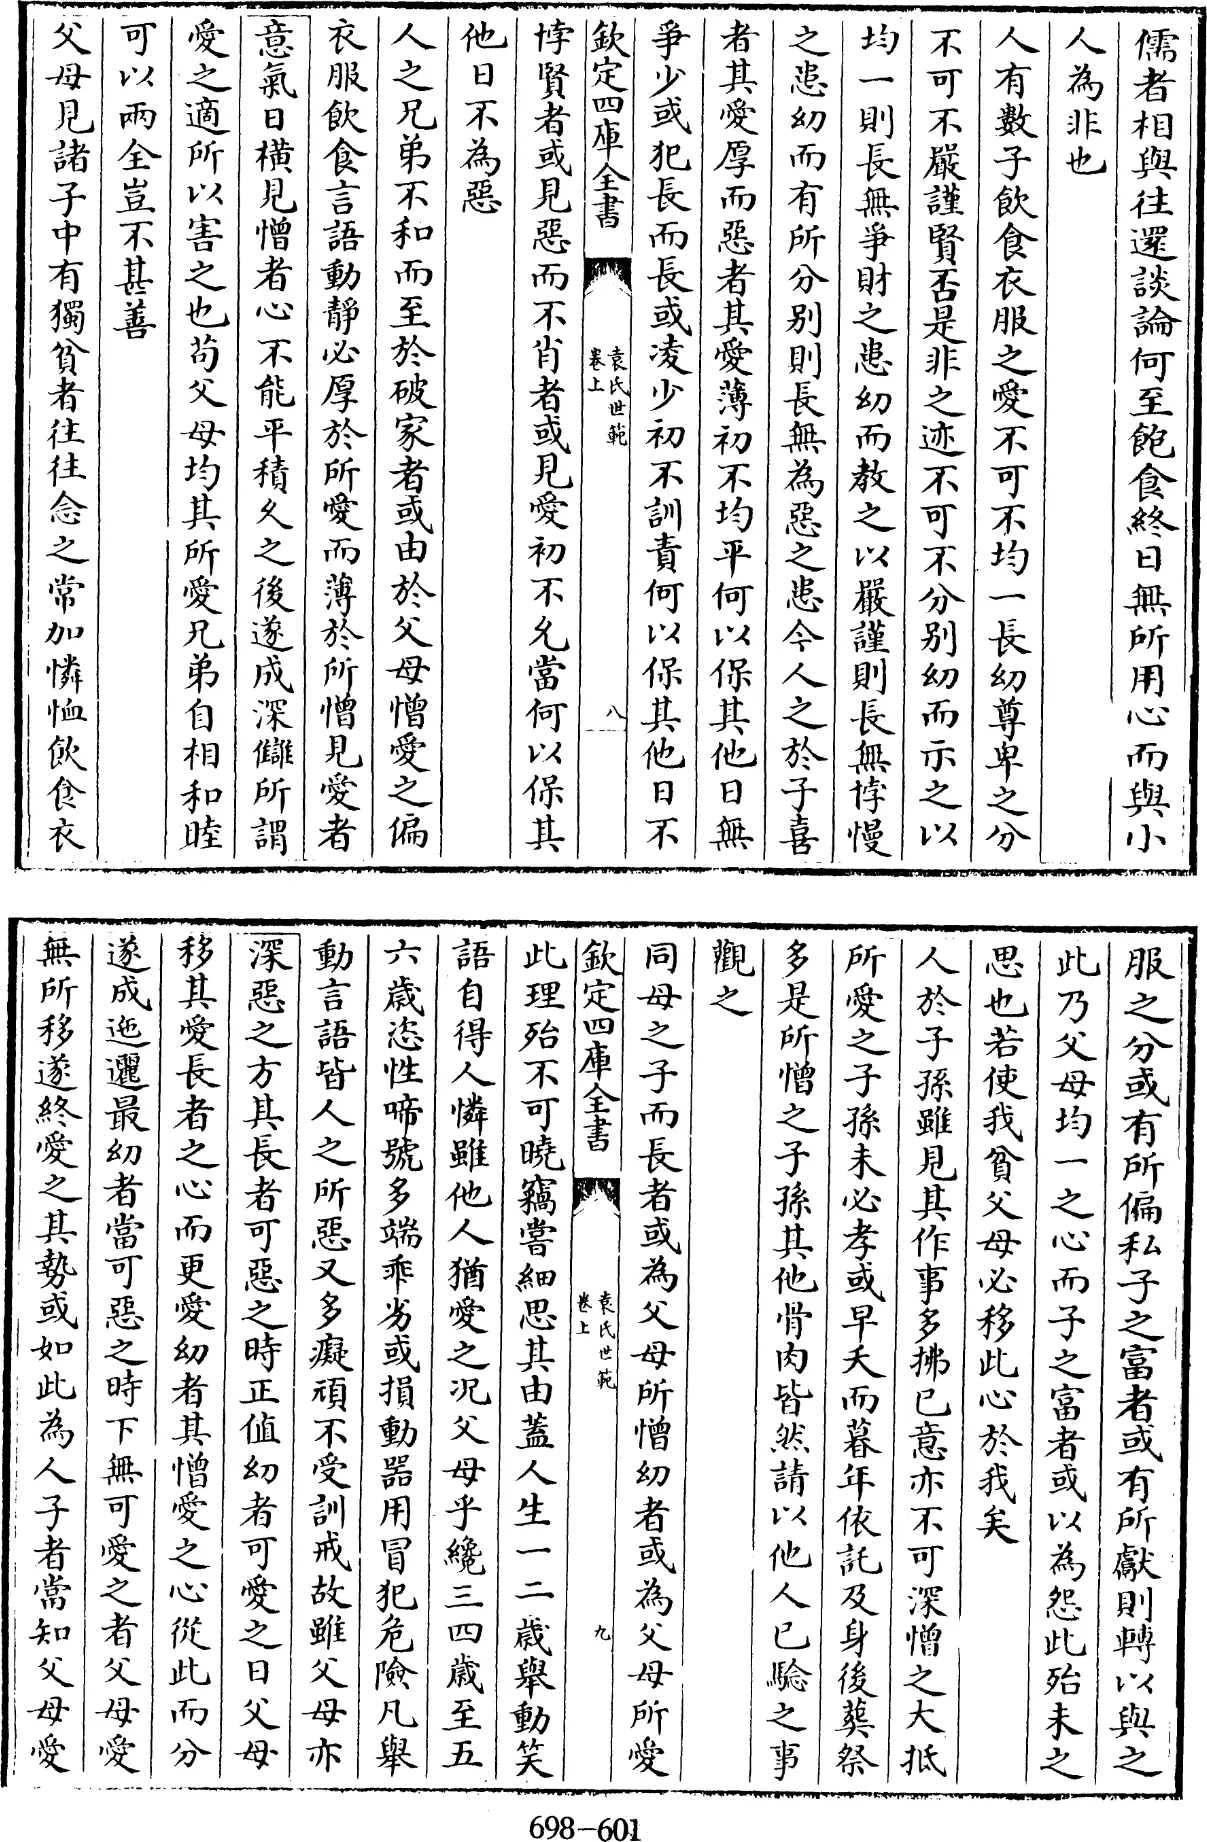 儒者相與往還談論何至飽食終日無所用心而與小
人為非也
人有數子飲食衣服之愛不可不均一長幼尊卑之分
不可不嚴謹賢否是非之迹不可不分别幼而示之以
均一則長無爭財之患幼而教之以嚴謹則長無悖慢
之患幼而有所分别則長無為惡之患今人之於子喜
者其愛厚而惡者其愛薄初不均平何以保其他日無
爭少或犯長而長或凌少初不訓責何以保其他日不
欽定四庫全書
袁氏世範
卷上
八
悖賢者或見惡而不肖者或見愛初不允當何以保其
他日不為惡
人之兄弟不和而至於破家者或由於父母憎愛之偏
衣服飲食言語動靜必厚於所愛而薄於所憎見愛者
意氣日橫見憎者心不能平積久之後遂成深讎所謂
愛之適所以害之也苟父母均其所愛兄弟自相和睦
可以兩全豈不甚善
父母見諸子中有獨貧者往往念之常加憐恤飲食衣
服之分或有所偏私子之富者或有所獻則轉以與之
此乃父母均一之心而子之富者或以為怨此殆未之
思也若使我貧父母必移此心於我矣
人於子孫雖見其作事多拂已意亦不可深憎之大抵
所愛之子孫未必孝或早夭而暮年依託及身後葬祭
多是所憎之子孫其他骨肉皆然請以他人已驗之事
觀之
同母之子而長者或為父母所憎幼者或為父母所愛
欽定四庫全書
袁氏世範
卷上
九
此理殆不可曉竊嘗細思其由蓋人生一二歲舉動笑
語自得人憐雖他人猶愛之况父母乎纔三四歲至五
六歲恣性啼號多端乖劣或損動器用冒犯危險凡舉
動言語皆人之所惡又多癡頑不受訓戒故雖父母亦
深惡之方其長者可惡之時正值幼者可愛之日父母
移其愛長者之心而更愛幼者其憎愛之心從此而分
遂成迤邐最幼者當可惡之時下無可愛之者父母愛
無所移遂終愛之其勢或如此為人子者當知父母愛
698-601